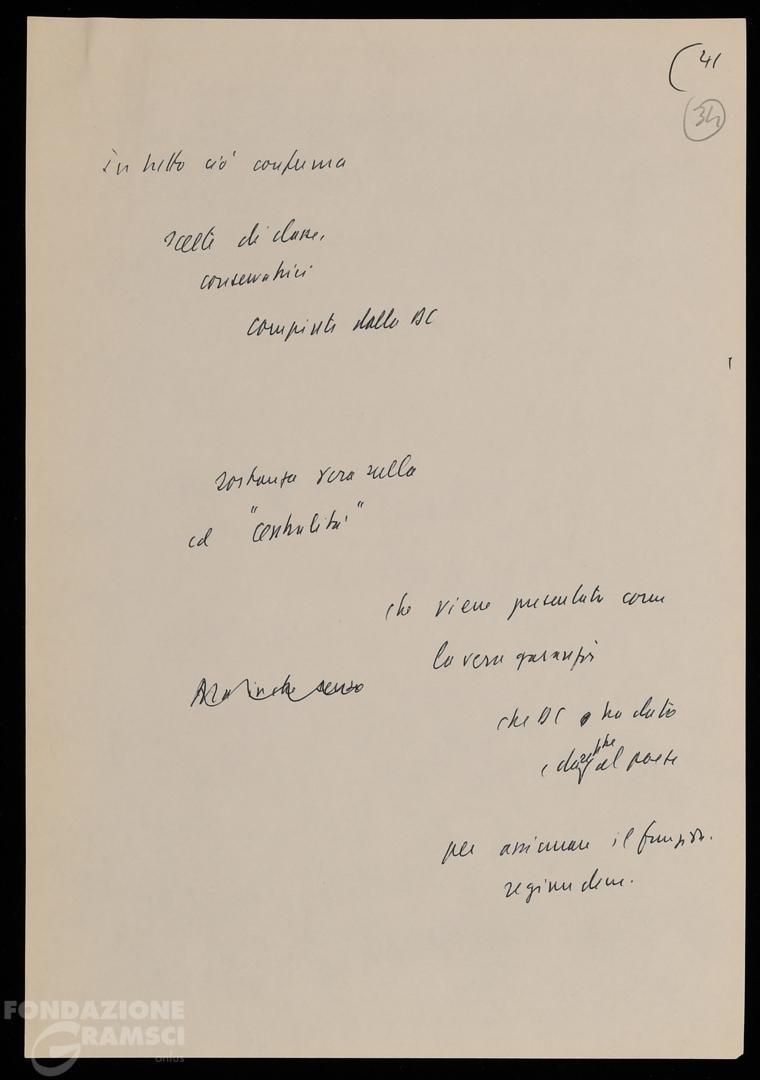 41
34
In tutto ciò conferma
scelte di classe,
conservatrici
compiute dalla DC
sostanza vera sulla
cd "centralità"
che viene presentata come
la vera garanzia
senso
che DC ha dato
e darebbe al paese
per assicurare il funzion.
regime dem.
FONDAZIONE
GRAMSCI
onlus